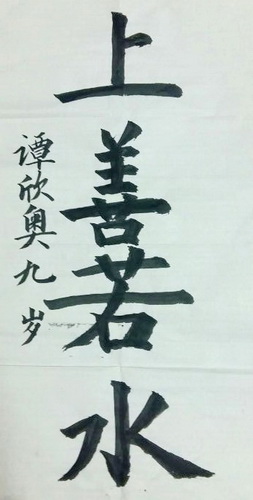 上善若水
谭欣奥九岁